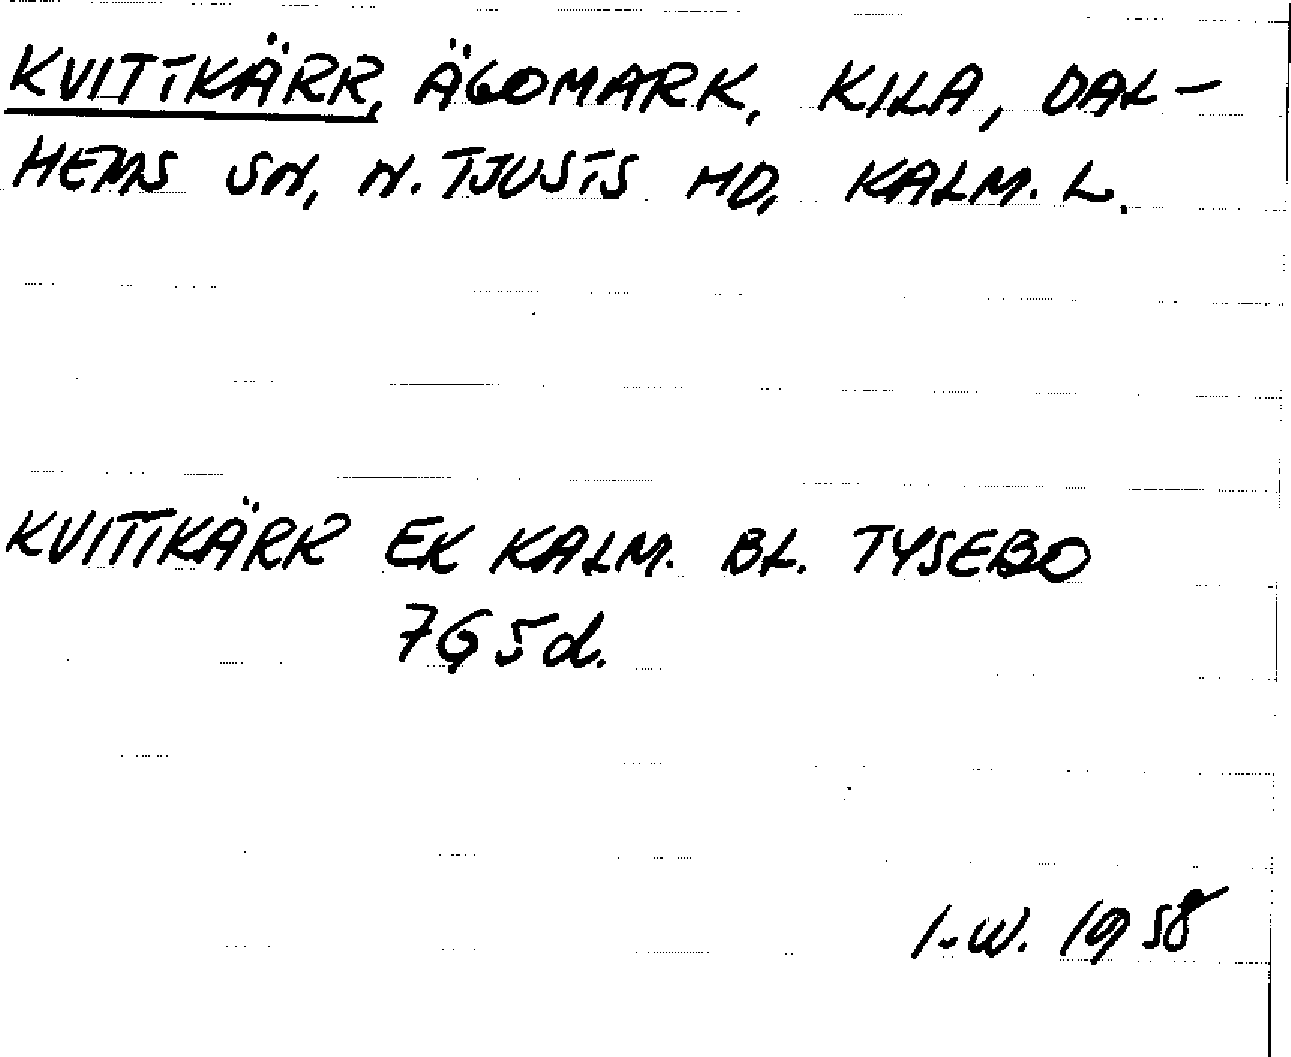 KVITTKÄRR, ÄGOMARK, KILA, DAL-
HEMS SN, N. TJUSTS HD, KALM. L.
KVITTKÄRR EK KALM. BL. TYSEBO
7G5d.
I-W. 1958